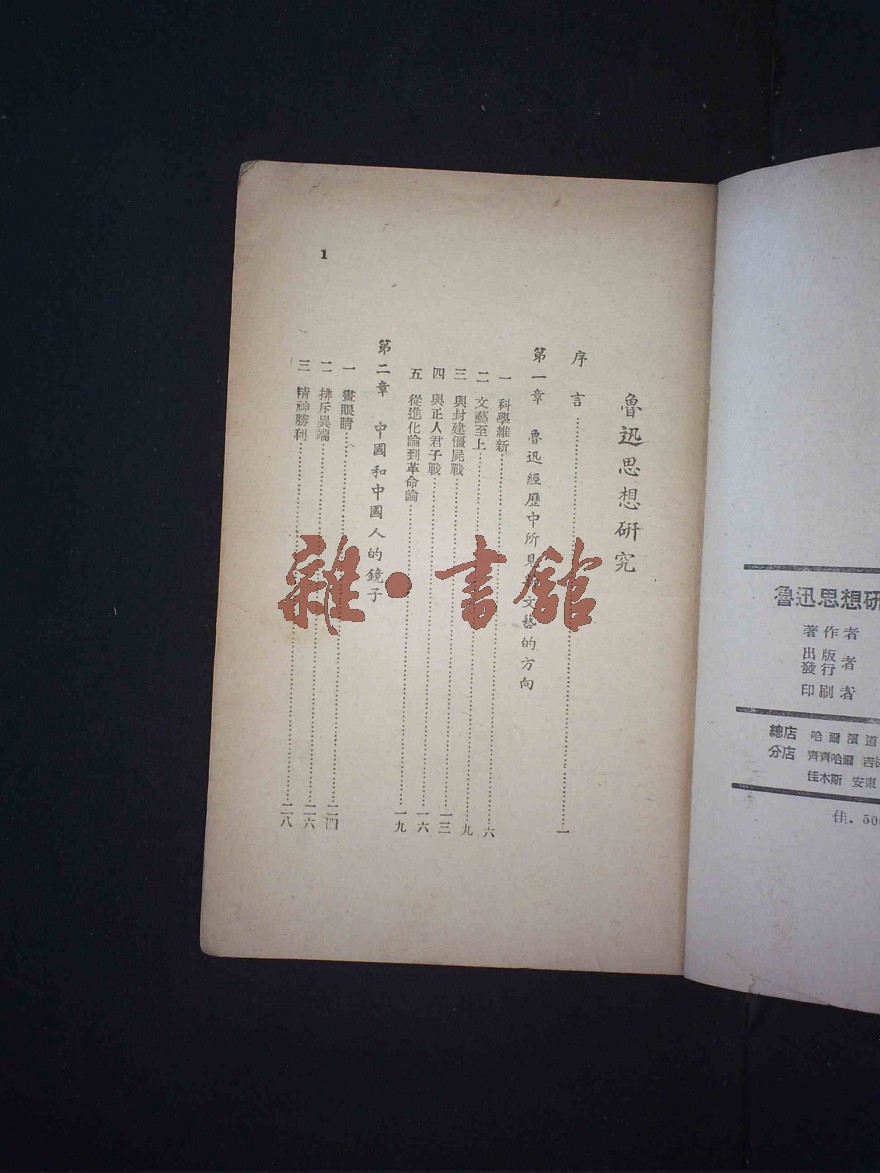 魯迅思想研究
序言 一
第一章 魯迅經歷中所見 文藝的方向
一 科學維新 六
二 文藝至上 九
三 與封建僵屍戰 一三
四 與正人君子戰 一六
五 從進化論到革命論 一九
第二章 中國和中國人的鏡子
一 畫眼睛 二四
二 排斥異端 二六
三 精神勝利 二八
1
雜·書館
魯迅思想研
著作者
出版
發行者
印刷者
總店 哈爾濱道
分店 齊齊哈爾 吉
佳木斯 安東
佳. 50